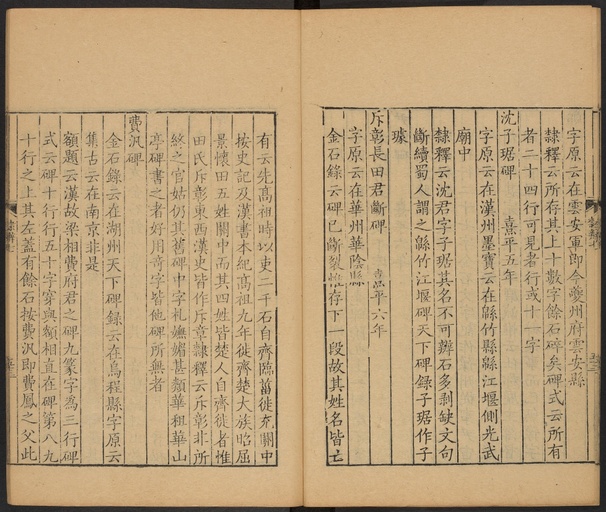 字原云在雲安軍即今夔州府雲安縣
隸釋云所存其上十數字餘石碎矣碑式云所有
者二十四行可見者行或十一字
沈子琚碑 熹平五年
字原云在漢州墨寶云在緜竹縣緜江堰側光武
廟中
隸釋云沈君字子琚其名不可辨石多剥缺文句
斷續蜀人謂之緜竹江堰碑天下碑錄子琚作子
璩
斥彰長田君斷碑 熹平六年
字原云在華州華陰縣
金石錄云碑已斷裂惟存下一段故其姓名皆亡
有云先高祖時以吏二千石自齊臨菑徙充關中
按史記及漢書本紀高祖九年徙齊楚大族昭屈
景懷田五姓關中而其四姓皆楚人自齊徙者惟
田氏斥彰東西漢史皆作斥章隸釋云斥彰非所
終之官姑仍其舊碑中字札嫵媚甚類華租華山
亭碑書之者好用奇字皆他碑所無者
費汎碑
金石錄云在湖州天下碑錄云在烏程縣字原云
集古云在南京非是
額題云漢故梁相費府君之碑九篆字為三行碑
式云碑十行行五十字穿與額相直在碑第八九
十行之上其左蓋有餘石按費汎即費鳳之父此